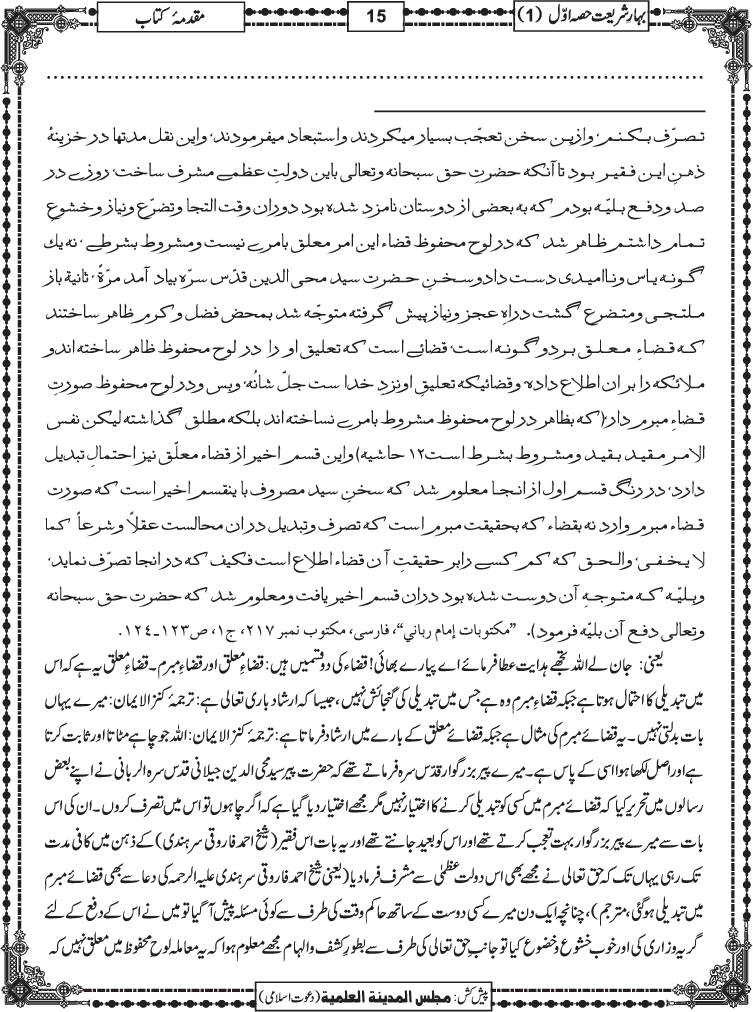 بہار شریعت حصہ اوّل (1)
15
مقدمۂ کتاب
تصرّف بکنم، وازین سخن تعجّب بسیار میکردند واستبعاد میفرمودند، واین نقل مدتہا در خزینۂ
ذہنِ این فقیر بود تا آنکہ حضرتِ حق سبحانہ وتعالی باین دولتِ عظمے مشرف ساخت، روزے در
صد ودفع بلیّہ بودم کہ بہ بعضی از دوستان نامزد شدہ بود دوران وقت التجا وتضرّع ونیاز وخشوعِ
تمام داشتم ظاہر شد کہ در لوح محفوظ قضاء این امر معلق بامرے نیست ومشروط بشرطے، نہ یك
گونہ یاس ونااامیدی دست داد وسخنِ حضرت سید محی الدین قدّس سرّہ بیاد آمد مرّۃً، ثانیۃ باز
ملتجی ومتضرع گشت دراہِ عجز ونیاز پیش گرفتہ متوجّہ شد بمحض فضل وکرم ظاہر ساختند
کہ قضاءِ معلق بردو گونہ است، قضائے است کہ تعلیق او را در لوح محفوظ ظاہر ساختہ اندو
ملائکہ را بران اطلاع دادہ، وقضائیکہ تعلیقِ اونزدِ خدا ست جلّ شانُہ، وبس ودر لوح محفوظ صورتِ
قضاءِ مبرم دارد، (کہ بظاہر در لوح محفوظ مشروط بامرے نساختہ اند بلکہ مطلق گذاشتہ لیکن نفس
الامر مقید بقید ومشروط بشرط است۱۲ حاشیہ) واین قسم اخیر از قضاء معلّق نیز احتمالِ تبدیل
دارد، در رنگ قسم اول از انجا معلوم شد کہ سخنِ سید مصروف با ینقسم اخیر است کہ صورت
قضاءِ مبرم وارد نہ بقضاء کہ بحقیقت مبرم است کہ تصرف وتبدیل دران محالست عقلاً وشرعاً کما
لا یخفی، والحق کہ کم کسے رابر حقیقتِ آن قضاء اطلاع است فکیف کہ درانجا تصرّف نماید،
وبلیّہ کہ متوجہِ آن دوست شدہ بود دران قسم اخیر یافت ومعلوم شد کہ حضرت حق سبحانہ
وتعالی دفع آن بلیّہ فرمود). "مکتوبات إمام رباني"، فارسی، مکتوب نمبر ۲۱۷، ج۱، ص۱۲۳۔۱۲٤.
یعنی: جان لے اللہ تجھے ہدایت عطا فرمائے اے پیارے بھائی! قضاء کی دو قسمیں ہیں: قضاءِ معلق اور قضاءِ مبرم۔ قضاءِ معلق یہ ہے کہ اس
میں تبدیلی کا احتمال ہوتا ہے جبکہ قضاءِ مبرم وہ ہے جس میں تبدیلی کی گنجائش نہیں، جیسا کہ ارشاد باری تعالی ہے: ترجمۂ کنز الایمان: میرے یہاں
بات بدلتی نہیں۔ یہ قضائے مبرم کی مثال ہے جبکہ قضائے معلق کے بارے میں ارشاد فرماتا ہے: ترجمۂ کنز الایمان: اللہ جو چاہے مٹاتا اور ثابت کرتا
ہے اور اصل لکھا ہوا اسی کے پاس ہے۔ میرے پیر بزرگوار قدّس سرہ فرماتے تھے کہ حضرت پیر سید محی الدین جیلانی قدس سرہ الربانی نے اپنے بعض
رسالوں میں تحریر کیا کہ قضائے مبرم میں کسی کو تبدیلی کرنے کا اختیار نہیں مگر مجھے اختیار دیا گیا ہے کہ اگر چاہوں تو اس میں تصرف کروں۔ ان کی اس
بات سے میرے پیر بزرگوار بہت تعجب کرتے تھے اور اس کو بعید جانتے تھے اور یہ بات اس فقیر (شیخ احمد فاروقی سرہندی) کے ذہن میں کافی مدت
تک رہی یہاں تک کہ حق تعالی نے مجھے بھی اس دولت عظمٰی سے مشرف فرما دیا (یعنی شیخ احمد فاروقی سرہندی علیہ الرحمہ کی دعا سے بھی قضائے مبرم
میں تبدیلی ہوگئی، مترجم)، چنانچہ ایک دن میرے کسی دوست کے ساتھ حاکم وقت کی طرف سے کوئی مسئلہ پیش آ گیا تو میں نے اس کے دفع کے لئے
گریہ وزاری کی اور خوب خشوع وخضوع کیا تو جانبِ حق تعالی کی طرف سے بطورِ کشف والہام مجھے معلوم ہوا کہ یہ معاملہ لوح محفوظ میں معلق نہیں کہ
پیش کش: مجلس المدینة العلمیة (دعوتِ اسلامی)